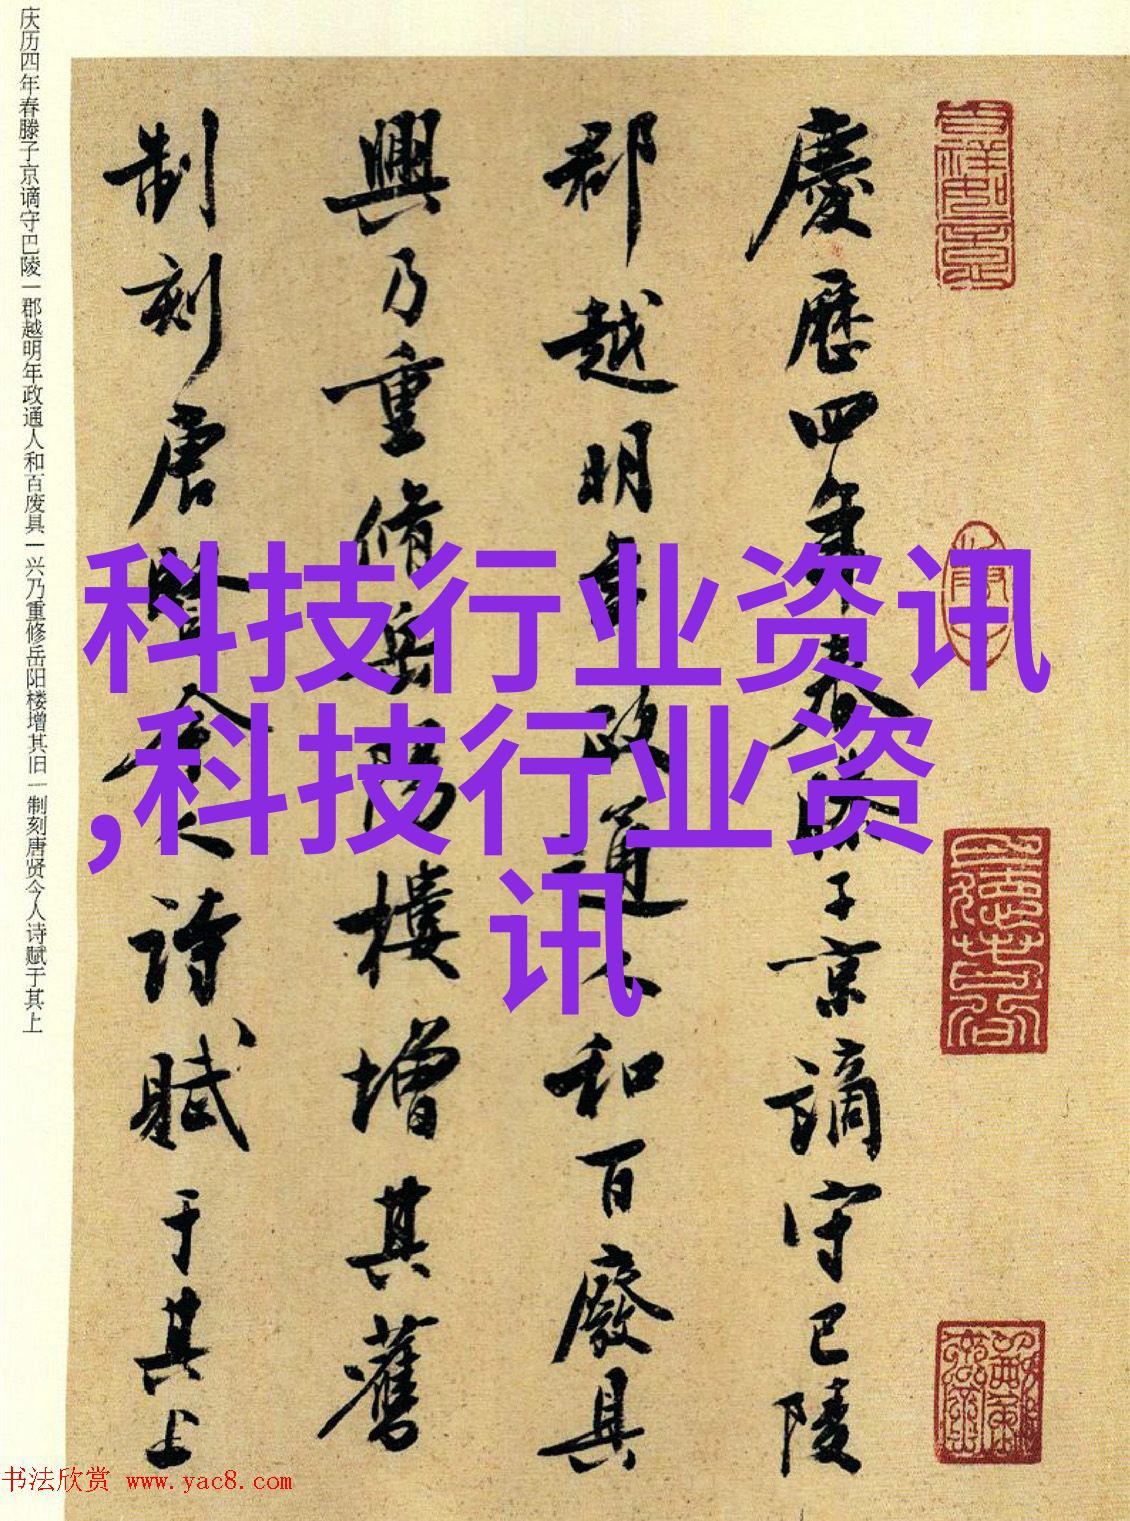 慶歷四年春滕子京謫守巴陵
郡越明年政通人和百廢具
興乃重脩岳陽樓增其舊
制刻唐賢今人詩賦于其上
庆历四年春滕子京谪守巴陵一郡越明年政通人和百废具一兴乃重修岳阳楼增其旧一制刻唐贤今人诗赋于其上
科技行业资讯
,科技行业资
讯
书法欣赏 www.yac8.com